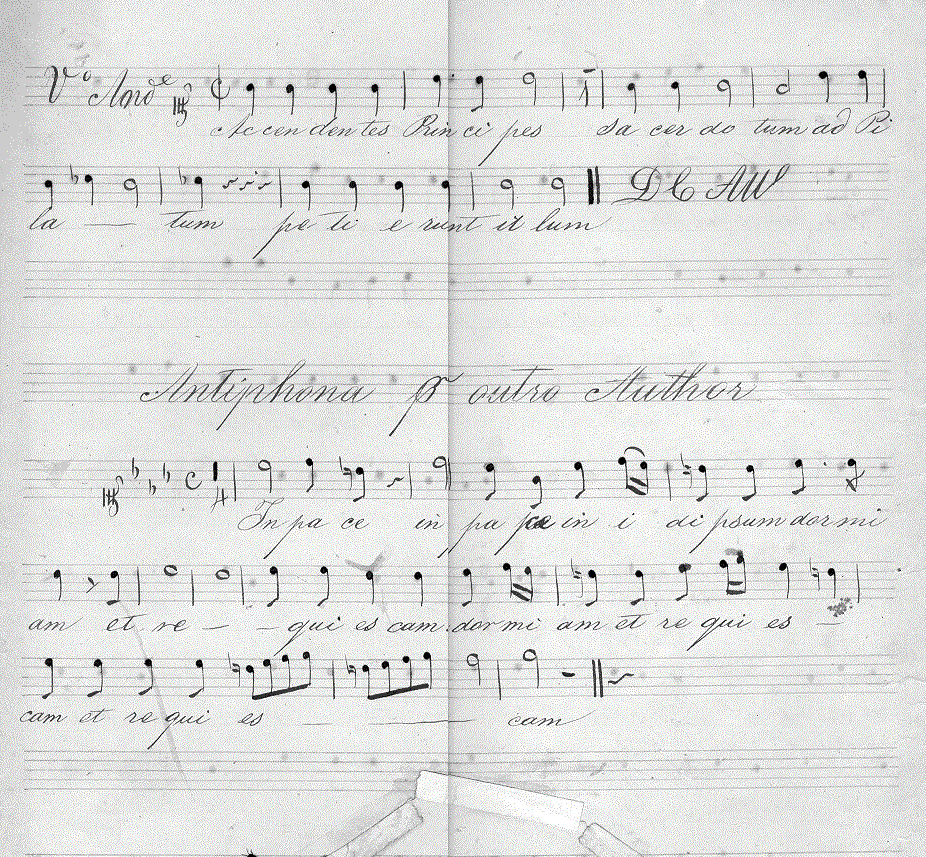 Vº Andᵉ
Ac cen den tes Prin ci pes Sa cer do tum ad Pi
la — tum pe ti e runt il lum
DC All
Antiphona pʳ outro Author
4
In pa ce in pa ce in i di psum dor mi
am et re — — qui es cam dor mi am et re qui es —
cam et re qui es — — cam